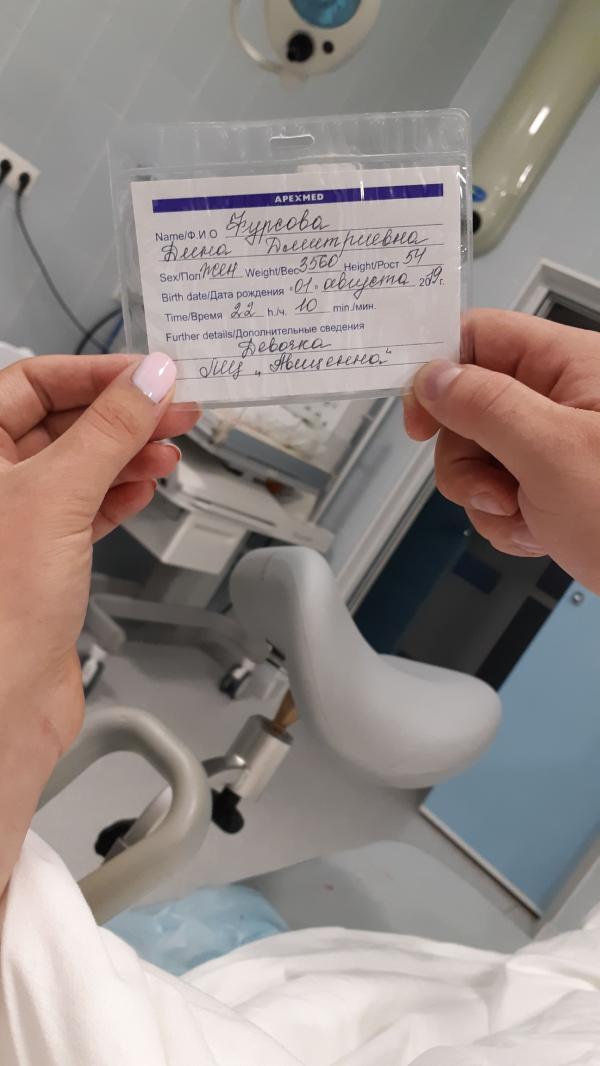 APEXMED
Name/Ф.И.О Фурсова
Дина Дмитриевна
Sex/Пол жен Weight/Вес 3560 Height/Рост 54
Birth date/Дата рождения "01" августа 2019г.
Time/Время 22 h./ч. 10 min./мин.
Further details/Дополнительные сведения
Девочка
ПМЦ „Авиценна"